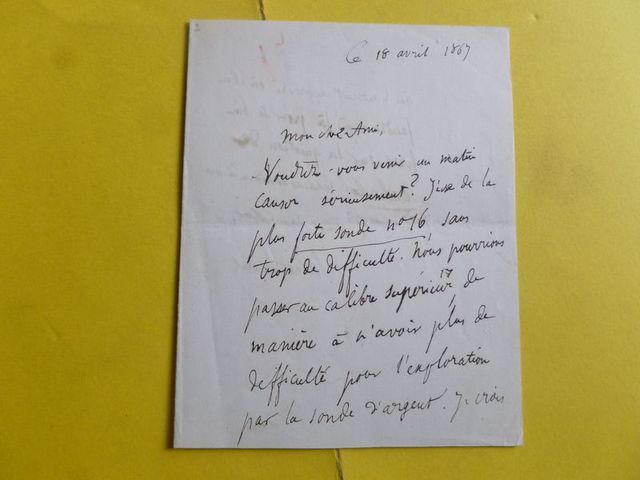 Ce 18 avril 1867
Mon cher Ami,
Voudriez-vous venir un matin
causer sérieusement? J'use de la
plus forte sonde n° 16 sans
trop de difficulté. Nous pourrions
passer au calibre supérieur 17 de
manière à n'avoir plus de
difficulté pour l'exploration
par la sonde d'argent. Je crois